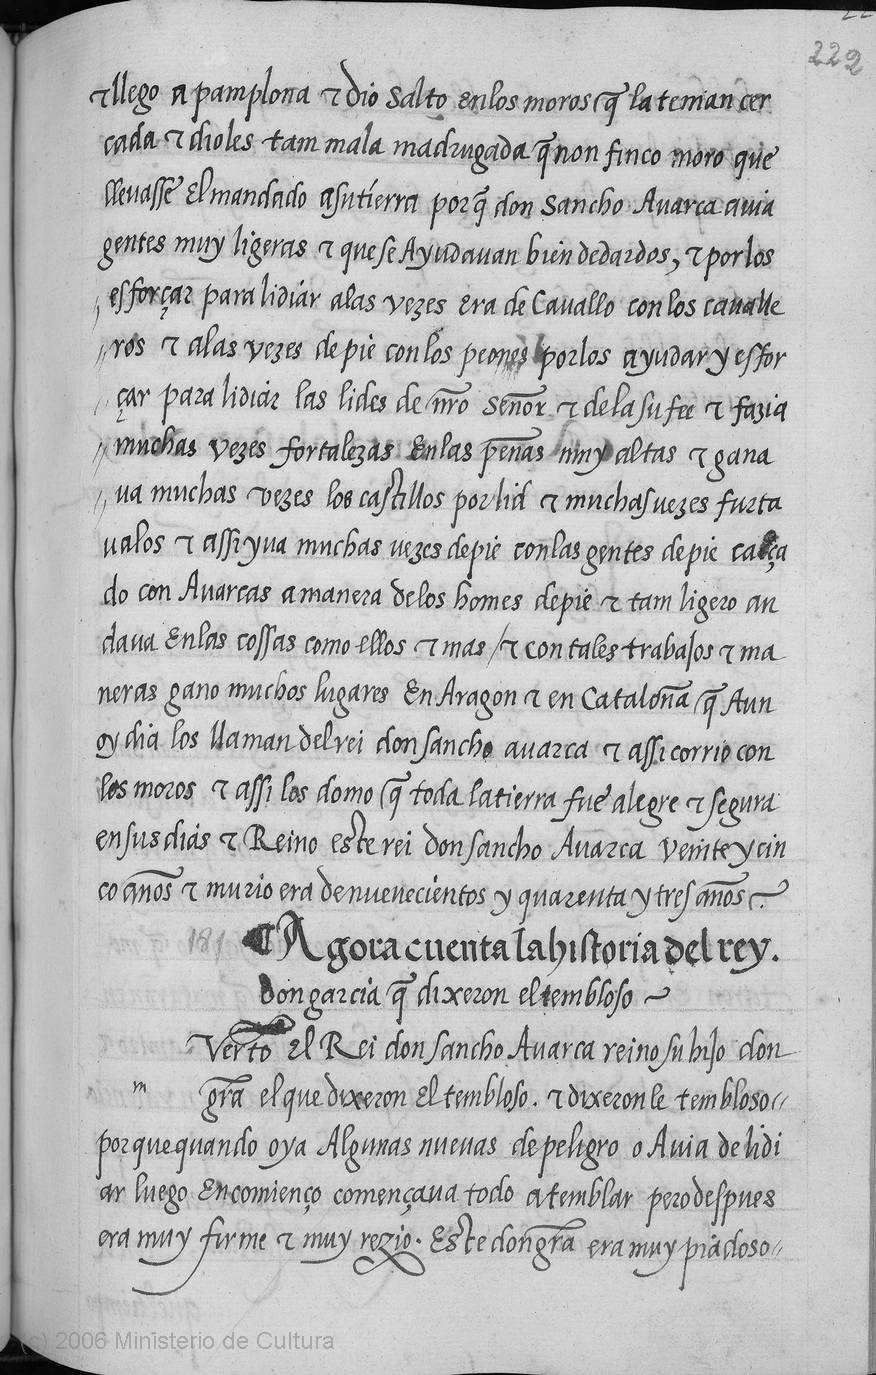 222
⁊ llego a pamplona ⁊ dio salto enlos moros q̃ la tenian cer
cada ⁊ dioles tam mala madrugada q̃ non finco moro que
lleuasse El mandado asutierra por q̃ don Sancho Auarca auia
gentes muy ligeras ⁊ que se Ayudauan bien dedardos, ⁊ por los
esforçar para lidiar alas vezes era de Cauallo con los caualle
ros ⁊ alas vezes de pie con los peones por los ayudar y esfor
çar para lidiar las lides de nr̃o Señor ⁊ de la su fee ⁊ fazia
muchas vezes fortalezas Enlas peñas muy altas ⁊ gana
ua muchas vezes los castillos por lid ⁊ muchas vezes furta
ualos ⁊ assi yua muchas vezes de pie con las gentes de pie calça
do con Auarcas amanera delos homes de pie ⁊ tam ligero an
daua Enlas cossas como ellos ⁊ mas / ⁊ con tales trabajos ⁊ ma
neras gano muchos lugares En Aragon ⁊ en Cataloña q̃ Aun
oy dia los llaman del rei don sancho auarca ⁊ assi corrio con
los moros ⁊ assi los domo q̃ toda latierra fue alegre ⁊ segura
en sus dias ⁊ Reino este rei don sancho Auarca veinte y cin
co años ⁊ murio era de nueuecientos y quarenta y tres años
181 Agora cuenta la historia del rey.
don garcia q̃ dixeron el tembloso
Verto El Rei don sancho Auarca reino su hijo don
m gr̃a el que dixeron El tembloso. ⁊ dixeronle tembloso
por que quando oya Algunas nueuas de peligro o Auia de lidi
ar luego Encomienço començaua todo atemblar pero despues
era muy firme ⁊ muy rezio. Este don gr̃a era muy piadoso
(c) 2006 Ministerio de Cultura